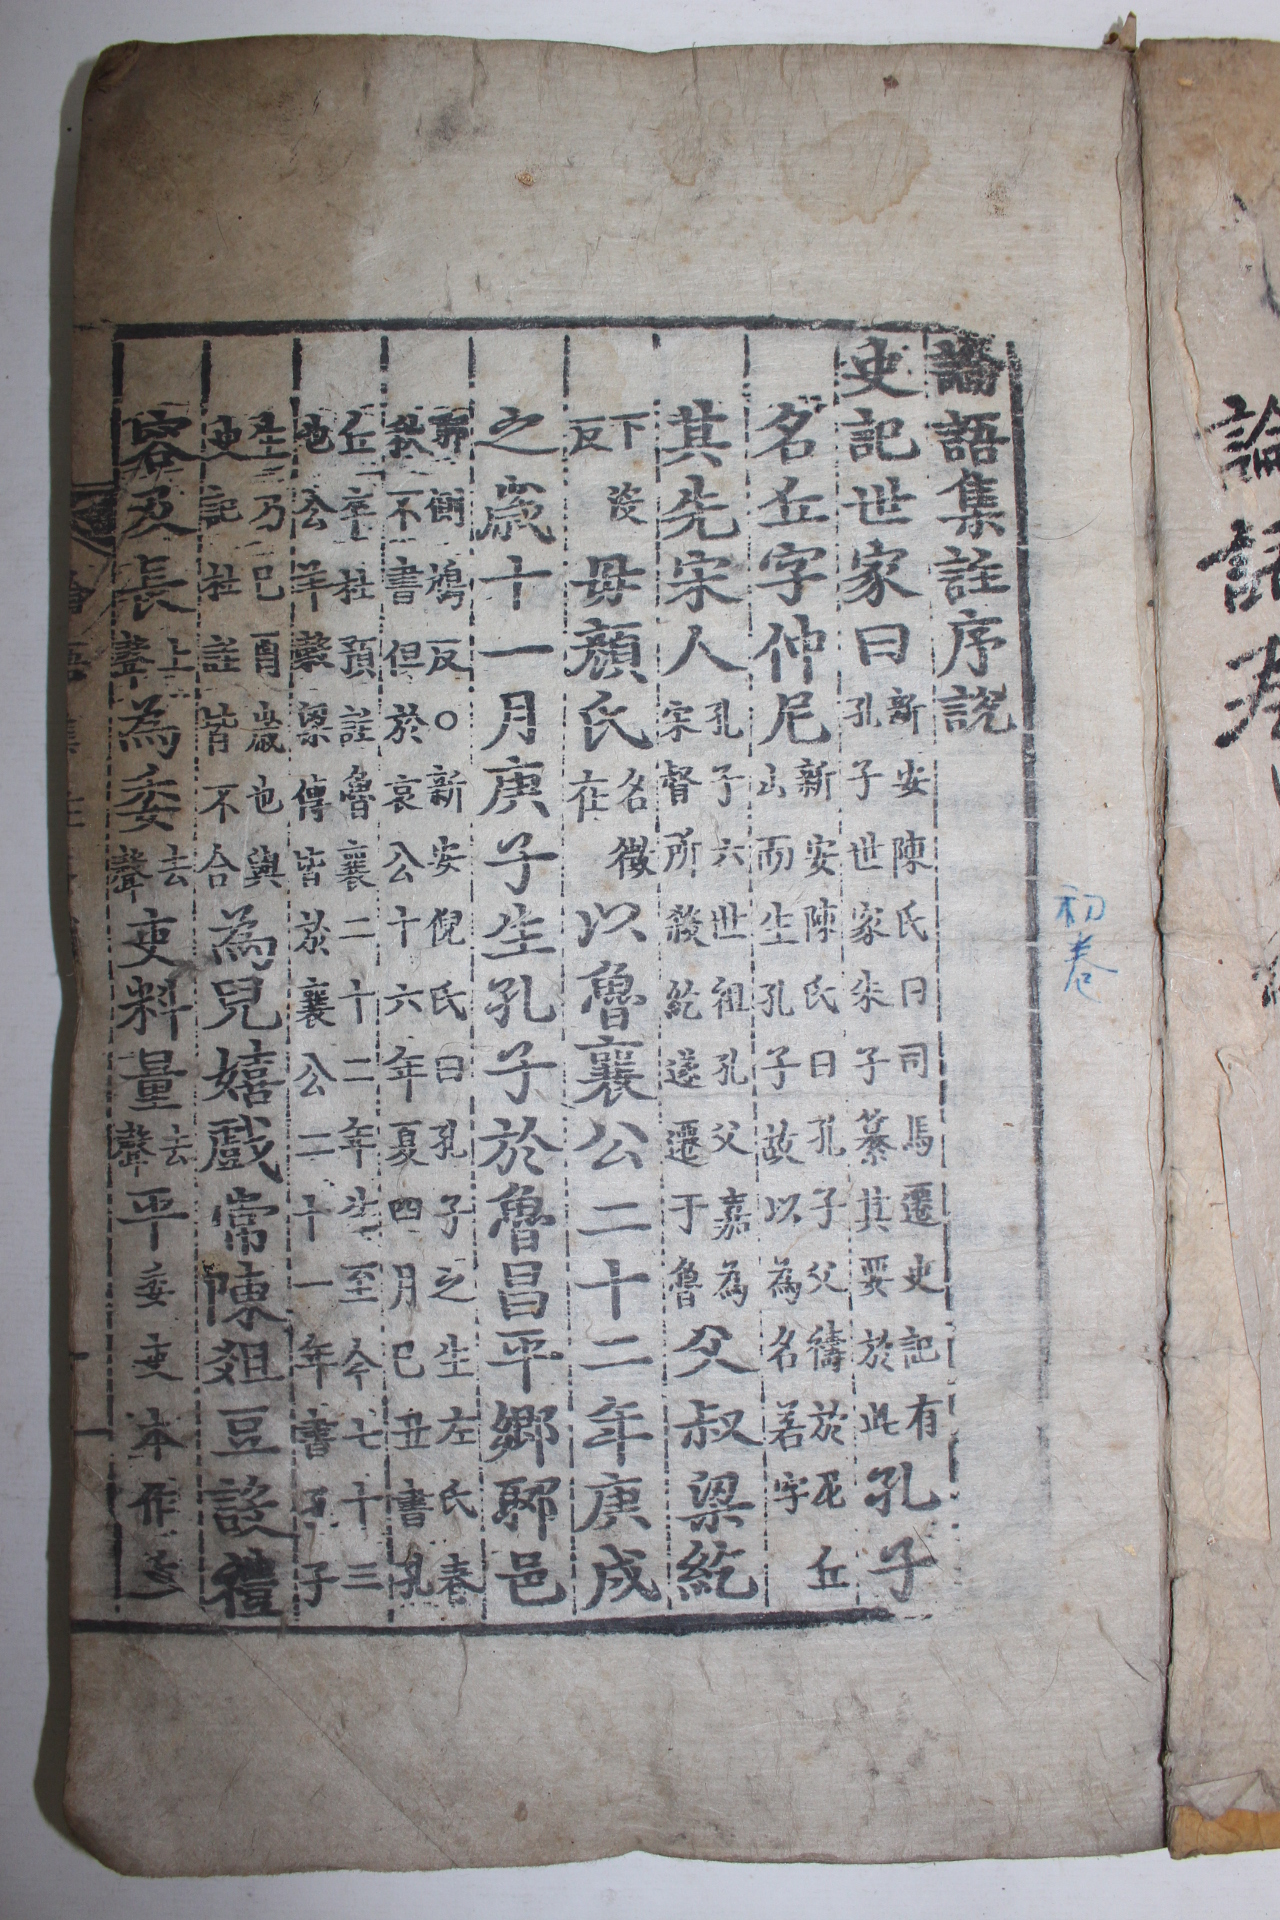 論語卷
初卷
論語集註序說
史記世家曰新安陳氏曰司馬遷史記有孔子世家朱子纂其要於此孔子
名丘字仲尼新安陳氏曰孔子父禱於尼丘山而生孔子故以為名若字
其先宋人孔子六世祖孔父嘉為宋督所殺紇遂遷于魯父叔梁紇
下沒反母顔氏名徵在以魯襄公二十二年庚戌
之歲十一月庚子生孔子於魯昌平鄉郰邑
郰側鳩反○新安倪氏曰孔子之生左氏春秋不書但於哀公十六年夏四月己丑書孔
丘卒杜預註魯襄二十二年生至今七十三也公羊穀梁傳皆於襄公二十一年書孔子
生乃己酉歲也與史記杜註皆不合為兒嬉戲常陳俎豆設禮
容及長上聲為委去聲吏料量去聲平委吏本作季